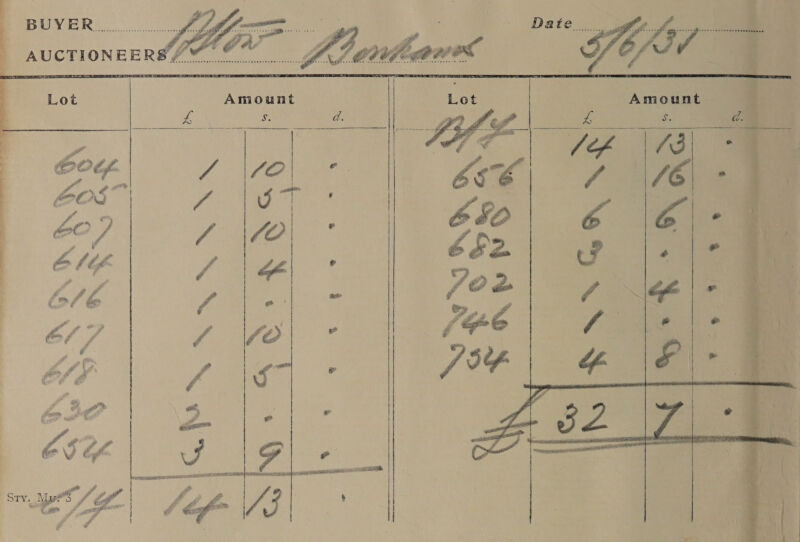 BUYER Stow Date 5/6/31
AUCTIONEERS Bonhams
Lot Amount
£ s. d.
604 1 10 "
605 1 5 "
607 1 10 "
614 1 4 "
616 1 " "
617 1 10 "
618 1 5 "
630 2 " "
654 3 9 "
C/F 14 13 "
Lot Amount
£ s. d.
B/F 14 13 "
656 1 16 "
680 6 6 "
682 3 " "
702 1 4 "
746 1 " "
754 4 8 "
£ 32 7 "